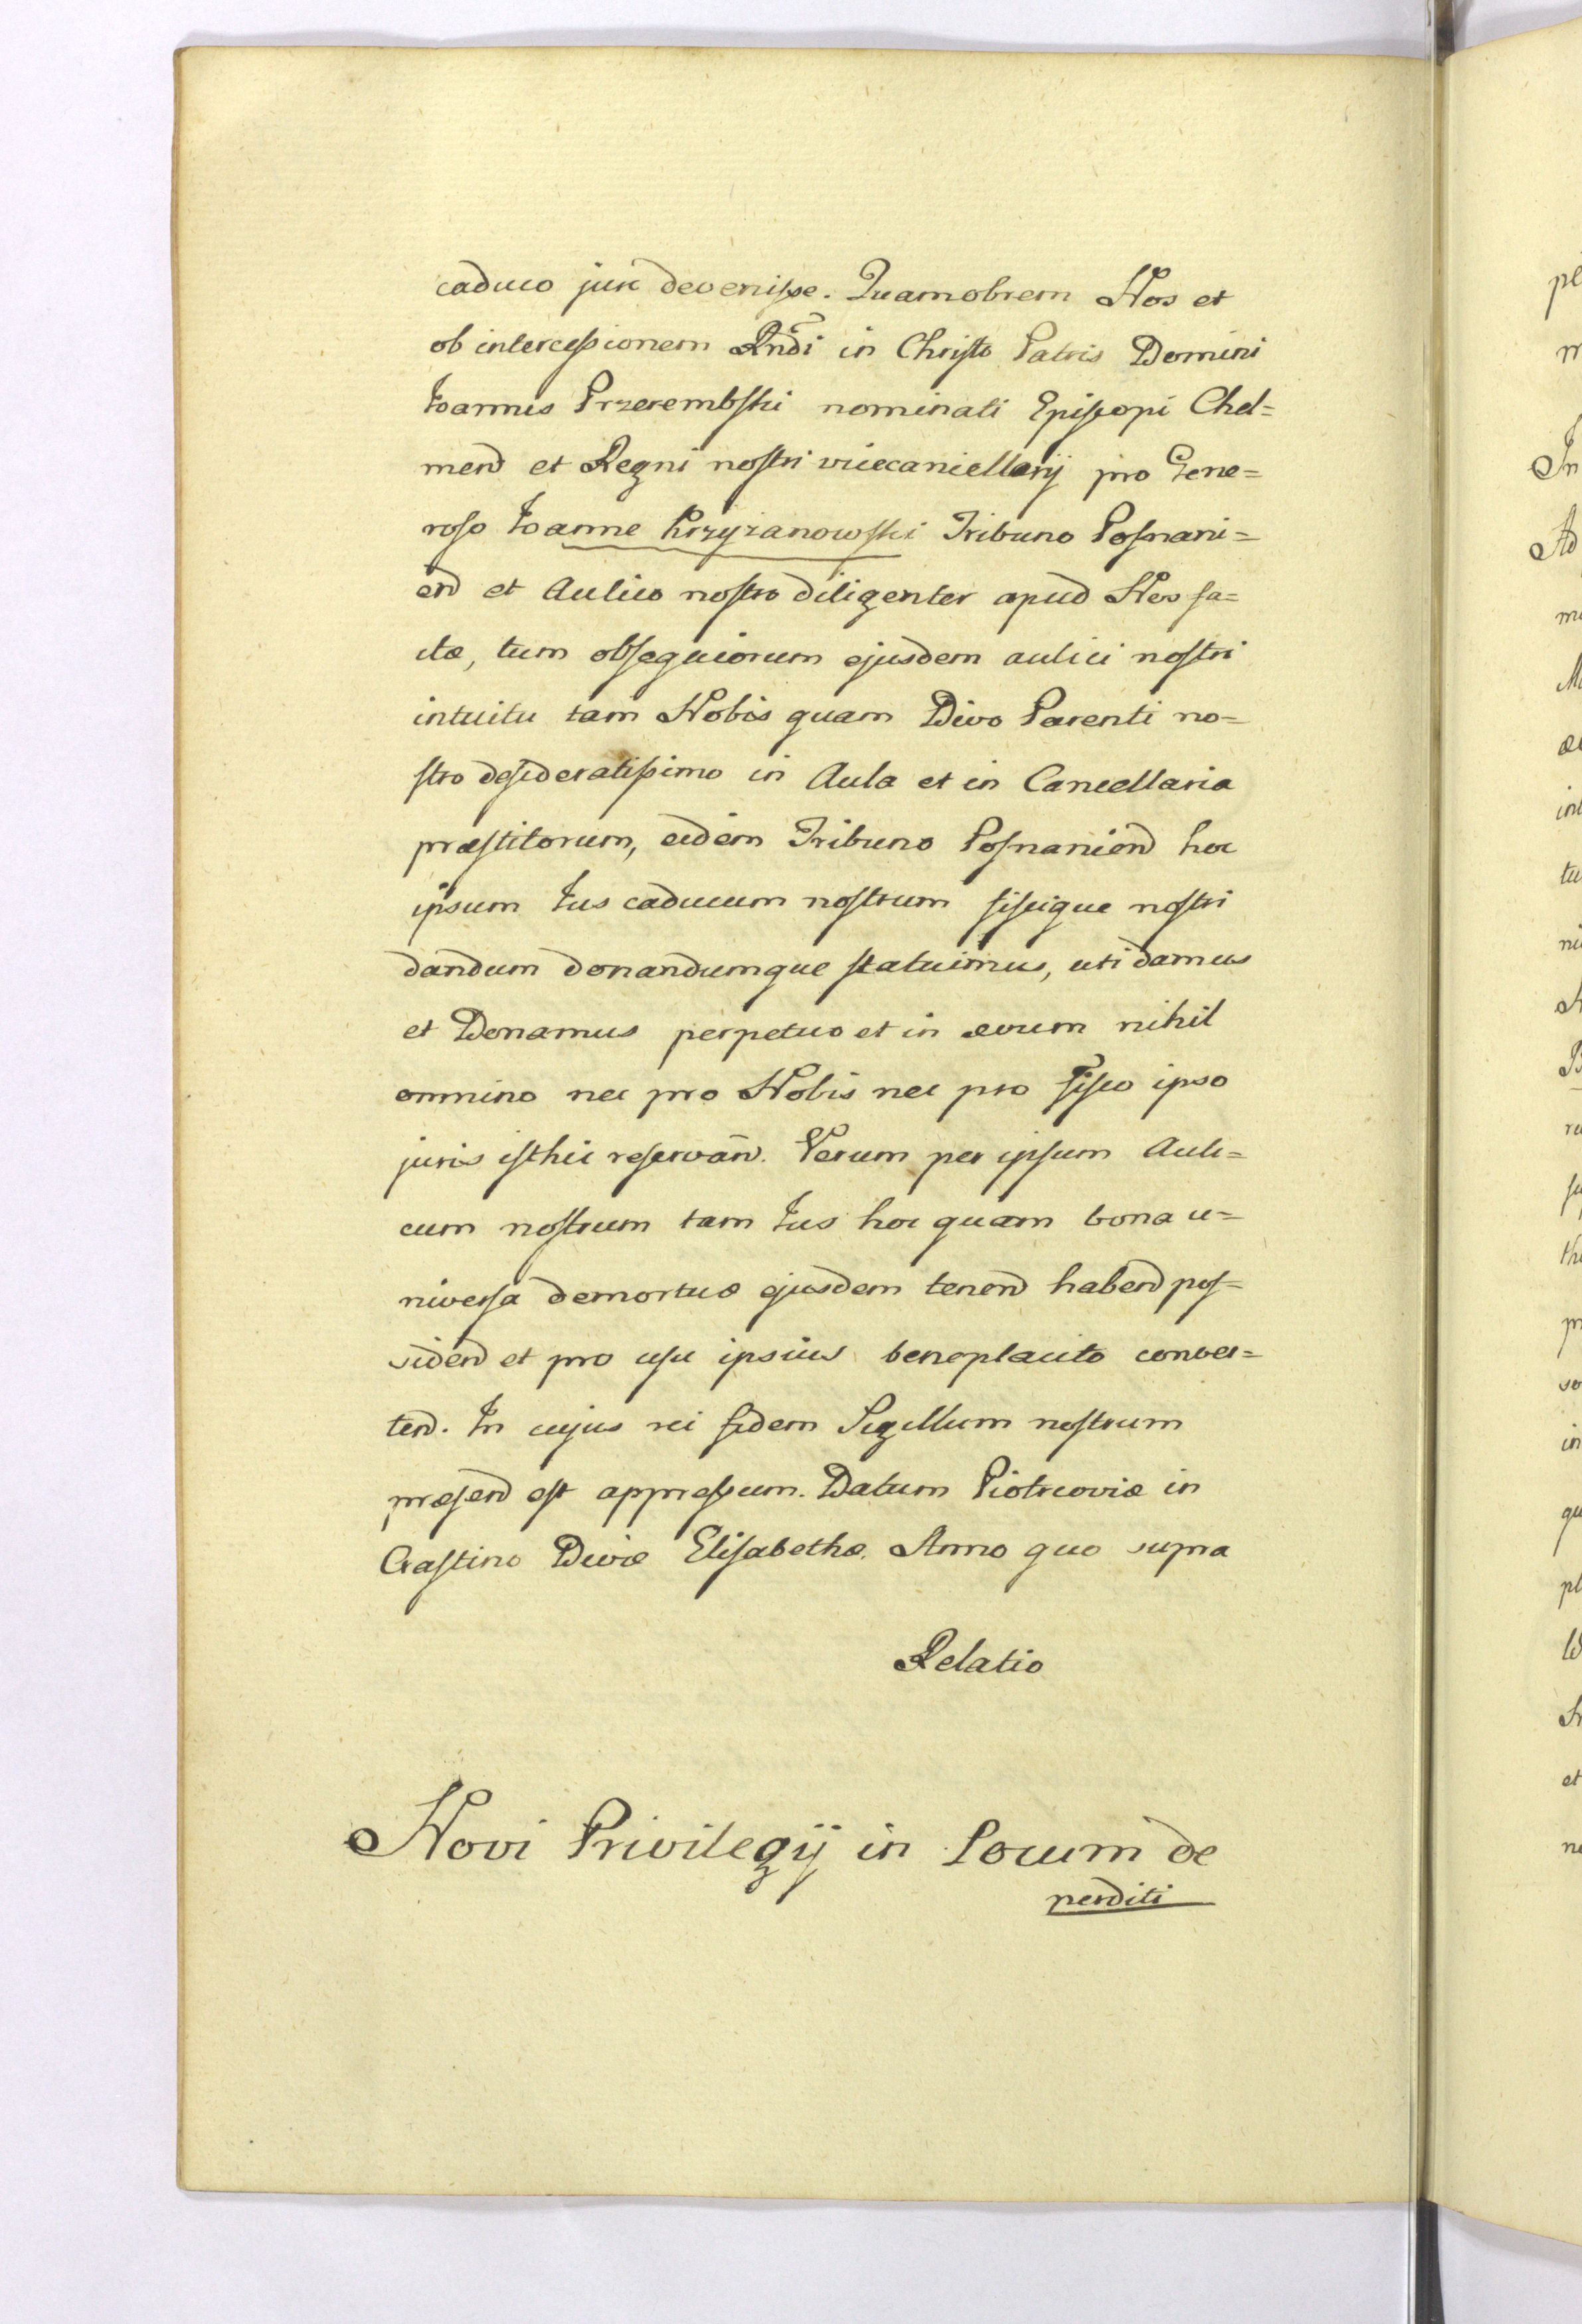 caduco jure devenisse. Quamobrem Nos et
ob intercessionem Rndi in Christo Patris Domini
Ioannis Przerembski nominati Episcopi Chel=
mend et Regni nostri vicecancellarij pro Gene=
roso Ioanne Krzyżanowski Tribuno Posnani=
end et Aulico nostro diligenter apud Nos fa=
ctæ, tum obsequiorum ejusdem aulici nostri
intuitu tam Nobis quam Divo Parenti no=
stro desideratissimo in Aula et in Cancellaria
præstitorum, eidem Tribuno Posnaniend hoc
ipsum Ius caducum nostrum fiscique nostri
dandum donandumque statuimus, uti damus
et Donamus perpetuo et in ævum nihil
omnino nec pro Nobis nec pro fisco ipso
juris isthic reservan̄d. Verum per ipsum Auli=
cum nostrum tam Ius hoc quam bona u=
niversa demortuæ ejusdem tenend habend pos=
sidend et pro usu ipsius beneplacito conver=
tend. In cujus rei fidem Sigillum nostrum
præsend est appressum. Datum Piotrcoviæ in
Crastino Divæ Elisabethæ. Anno quo supra
Relatio
Novi Privilegij in Locum de
perditi
pl
m
In
Ad
int
tu
ni
th
in
qu
pl
et